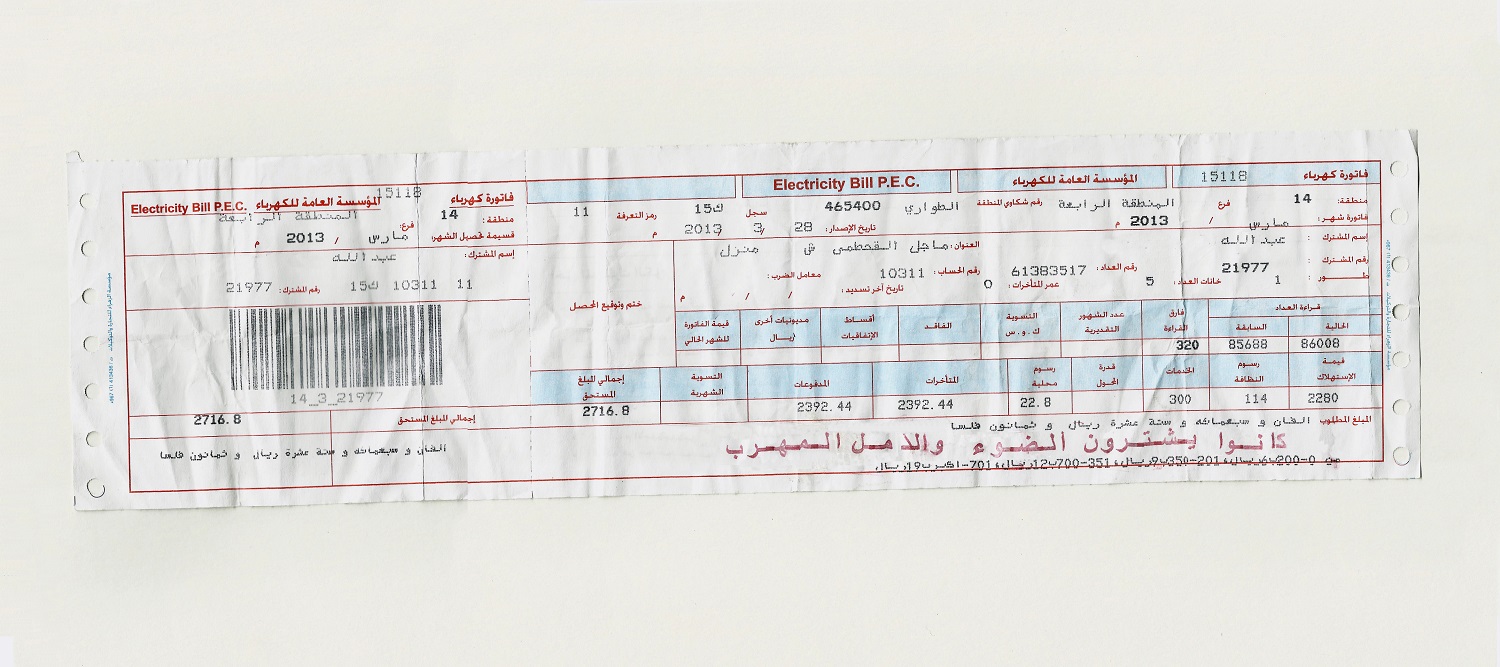 فاتورة كهرباء 15118 المؤسسة العامة للكهرباء Electricity Bill P.E.C.
منطقة: 14 فرع المنطقة الرابعة رقم شكاوي المنطقة الطواري 465400 سجل 15ك رمز التعرفة 11
فاتورة شهر: مارس / 2013 م تاريخ الإصدار: 28 / 3 / 2013 م
إسم المشترك : عبد الله العنوان: ماجل القحطمي ق منزل
رقم المشترك : 21977 رقم العداد: 61383517 رقم الحساب: 10311 معامل الضرب:
طـــور : 1 خانات العداد: 5 عمر المتأخرات: 0 تاريخ آخر تسديد: / / م
ختم وتوقيع المحصل
قراءة العداد
الحالية السابقة فارق القراءة عدد الشهور التقديرية التسوية ك.و.س الفاقد أقساط الإتفاقيات مديونيات أخرى /ريال قيمة الفاتورة للشهر الحالي
86008 85688 320
قيمة الإستهلاك رسوم النظافة الخدمات قدرة المحول رسوم محلية المتأخرات المدفوعات التسوية الشهرية إجمالي المبلغ المستحق
2280 114 300 22.8 2392.44 2392.44 2716.8
المبلغ المطلوب الفان و سبعمائه و ستة عشرة ريال و ثمانون فلسا
كانوا يشترون الضوء والامل المهرب
من 0-200ب6ريال،201-350ب9ريال،351-700ب12ريال،701-اكبرب19ريال
فاتورة كهرباء 15118 المؤسسة العامة للكهرباء Electricity Bill P.E.C.
منطقة: 14 فرع: المنطقة الرابعة
قسيمة تحصيل الشهر: مارس / 2013 م
إسم المشترك: عبد الله
11 10311 15ك رقم المشترك: 21977
14_3_21977
إجمالي المبلغ المستحق 2716.8
الفان و سبعمائه و ستة عشرة ريال و ثمانون فلسا